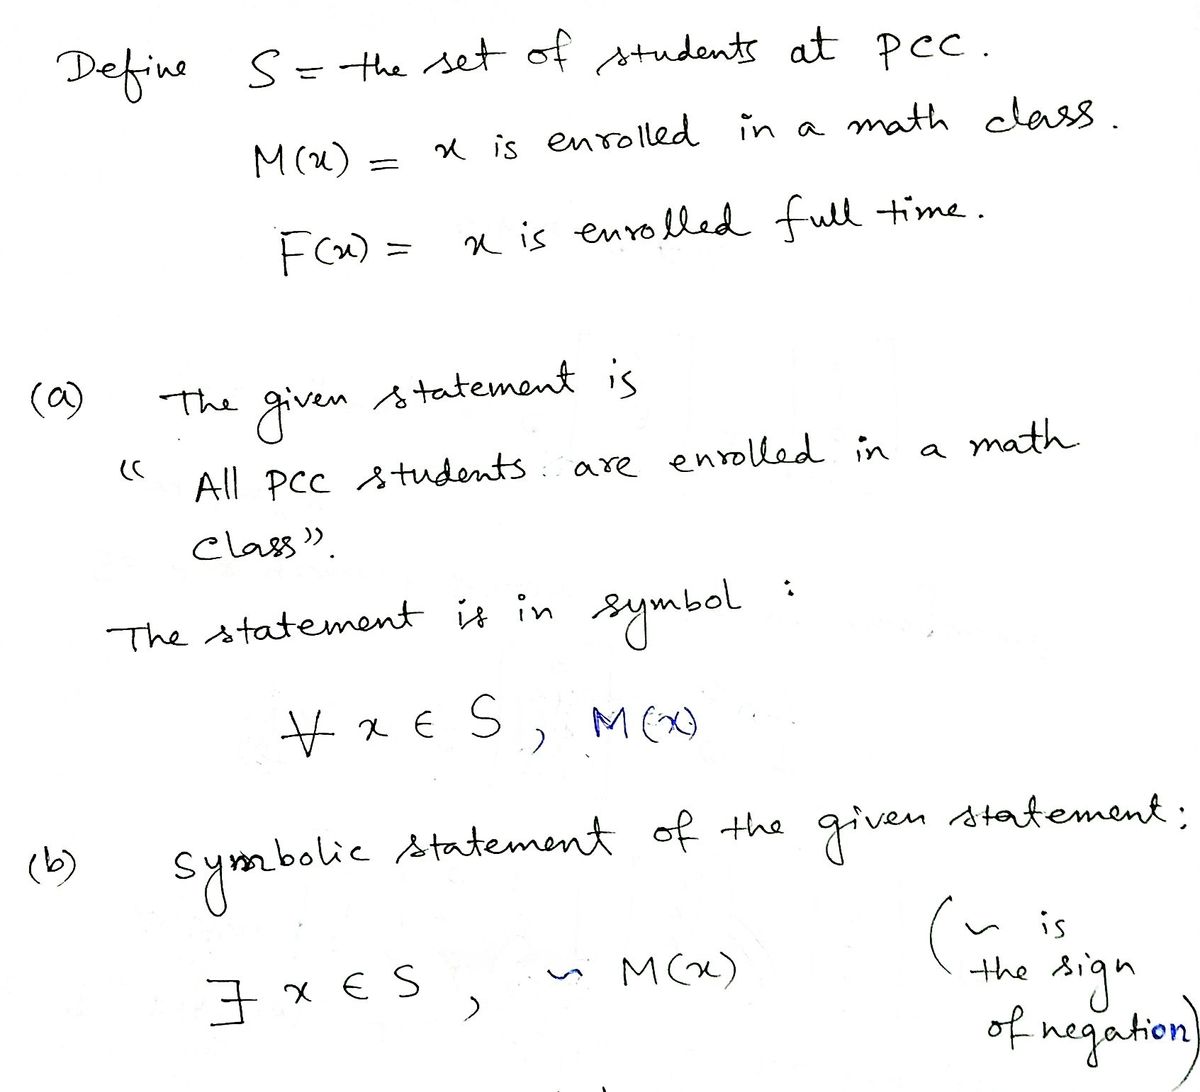 Define S = the set of students at PCC.
M(x) = x is enrolled in a math class.
F(x) = x is enrolled full time.
(a) The given statement is
“ All PCC students are enrolled in a math
class”.
The statement is in symbol :
∀ x ∈ S , M(x)
(b) symbolic statement of the given statement:
∃ x ∈ S , ~ M(x)
(~ is
the sign
of negation)